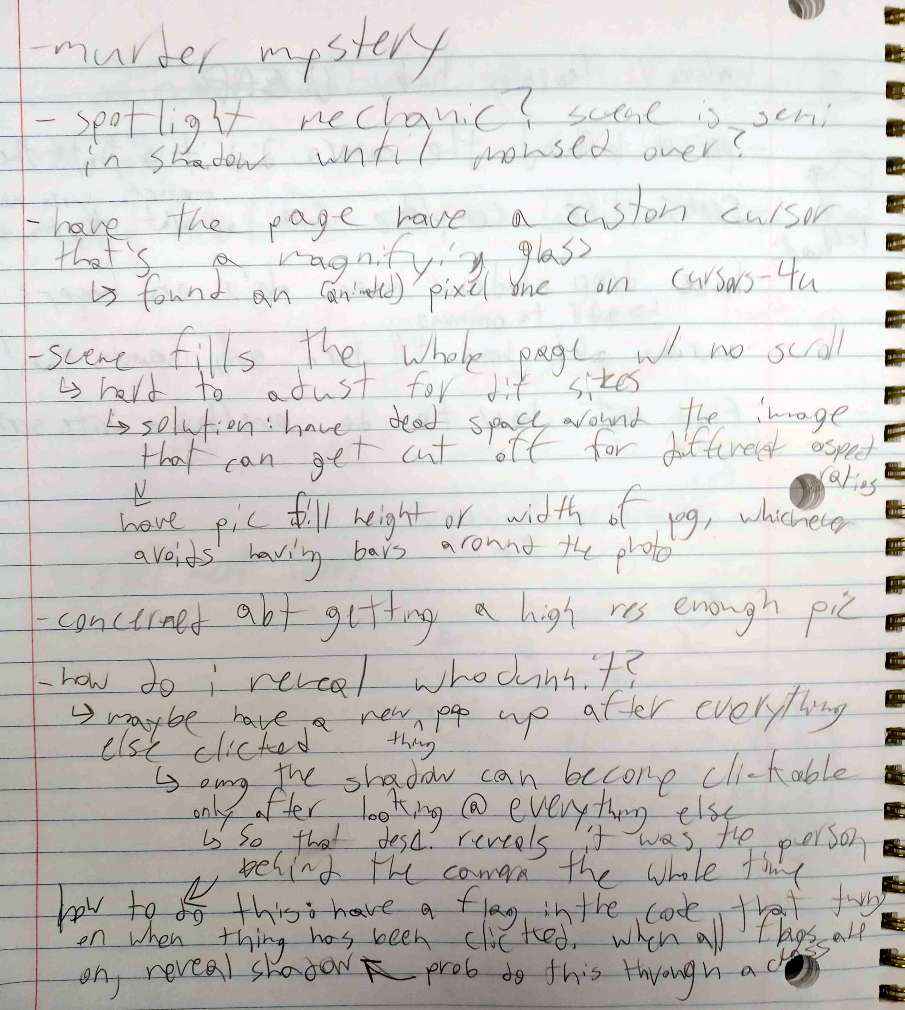 - murder mystery
- spotlight mechanic? scene is semi
in shadow until moused over?
- have the page have a custom cursor
that's a magnifying glass
↳ found an (animated) pixel one on cursors-4u
- scene fills the whole page w/ no scroll
↳ hard to adust for dif sizes
↳ solution: have dead space around the image
that can get cut off for different aspect
ratios
have pic fill height or width of pg, whichever
avoids having bars around the photo
- concerned abt getting a high res enough pic
- how do i reveal whodunnit?
↳ maybe have a new thing pop up after everything
else clicked
↳ omg the shadow can become clickable
only after looking @ everything else
↳ so that desc. reveals it was the person
behind the camera the whole time
how to do this: have a flag in the code that turns
on when thing has been clicked. when all flags are
on, reveal shadow ↖ prob do this through a class